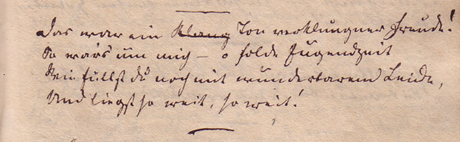 Das war ein Klang Ton verklungner Freude!
So war's um mich – o holde Jugendzeit
Wie füllst du noch mit wunderbarem Leide,
Und liegst so weit, so weit!